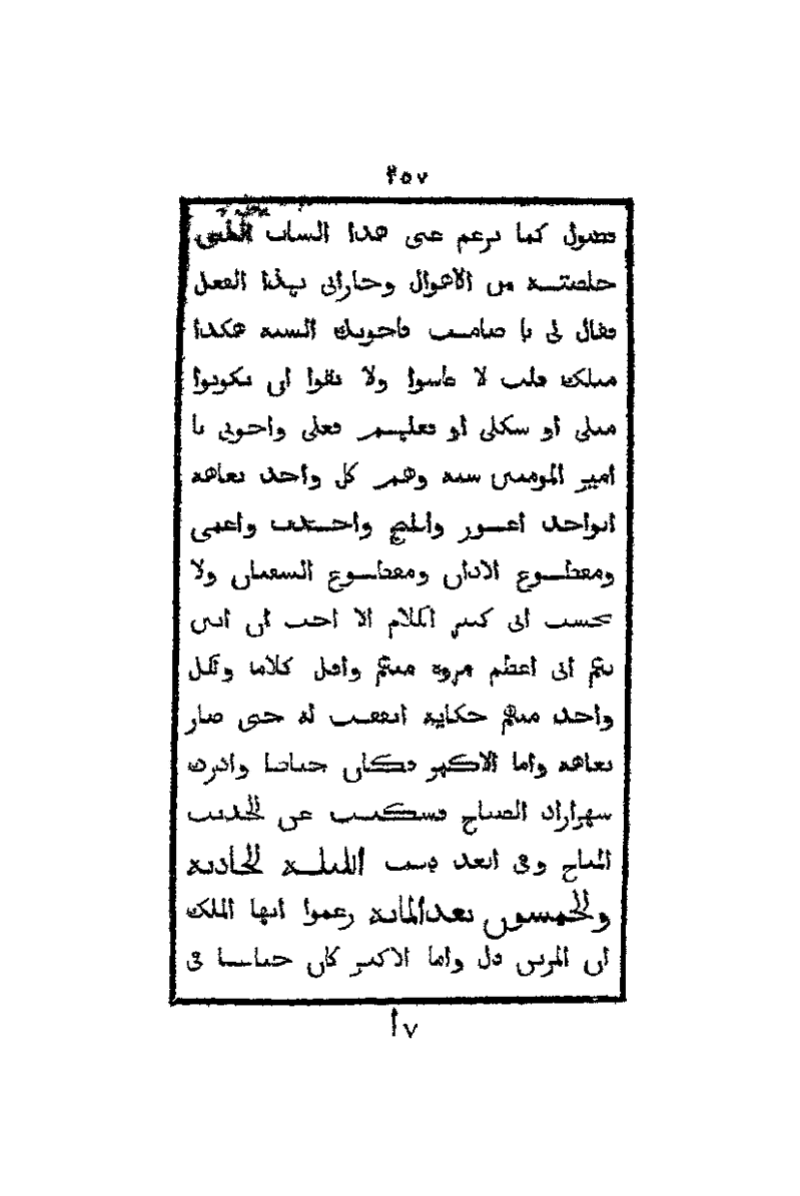 ٢٥٧
فضول كما يزعم عنى هذا الشاب الذى
خلصته من الاهوال وجازانى بهذا الفعل
فقال لى يا صامت فاخوتك الستة هكذا
مثلك قلت لا عاشوا ولا بقوا ان يكونوا
مثلى او شكلى او تعليهم فعلى واخوتى يا
امير المومنين ستة وهم كل واحد بعاهة
الواحد اعور وافلج واحدب واعمى
ومقطوع الاذان ومقطوع الشفتان ولا
تحسب انى كثير الكلام الا احب ان ابين
لكم انى اعظم مروة منهم واقل كلاما ولكل
واحد منهم حكاية اتفقت له حتى صار
بعاهة واما الاكبر فكان خياطا وادرك
شهرازاد الصباح فسكتت عن الحديث
المباح وفى الغد قالت الليلة الحادية
والخمسون بعد المائة زعموا ايها الملك
ان المزين قال واما الاكبر كان خياطا فى
١٧